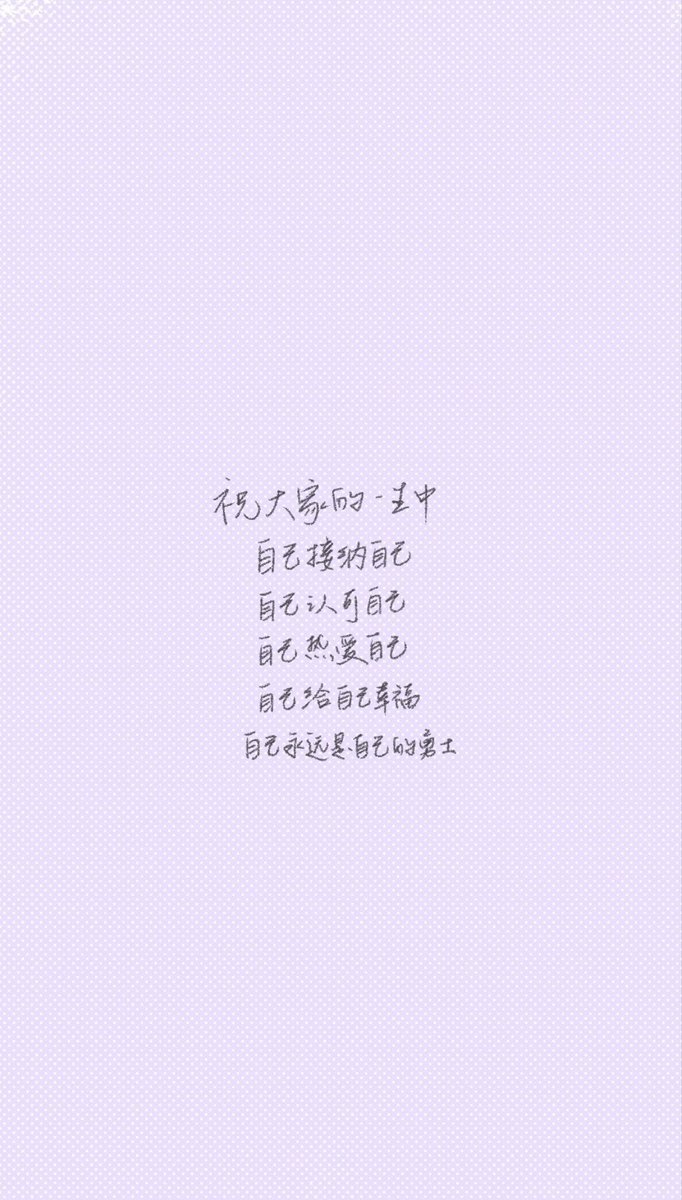 祝大家的一生中
自己接纳自己
自己认可自己
自己热爱自己
自己给自己幸福
自己永远是自己的勇士